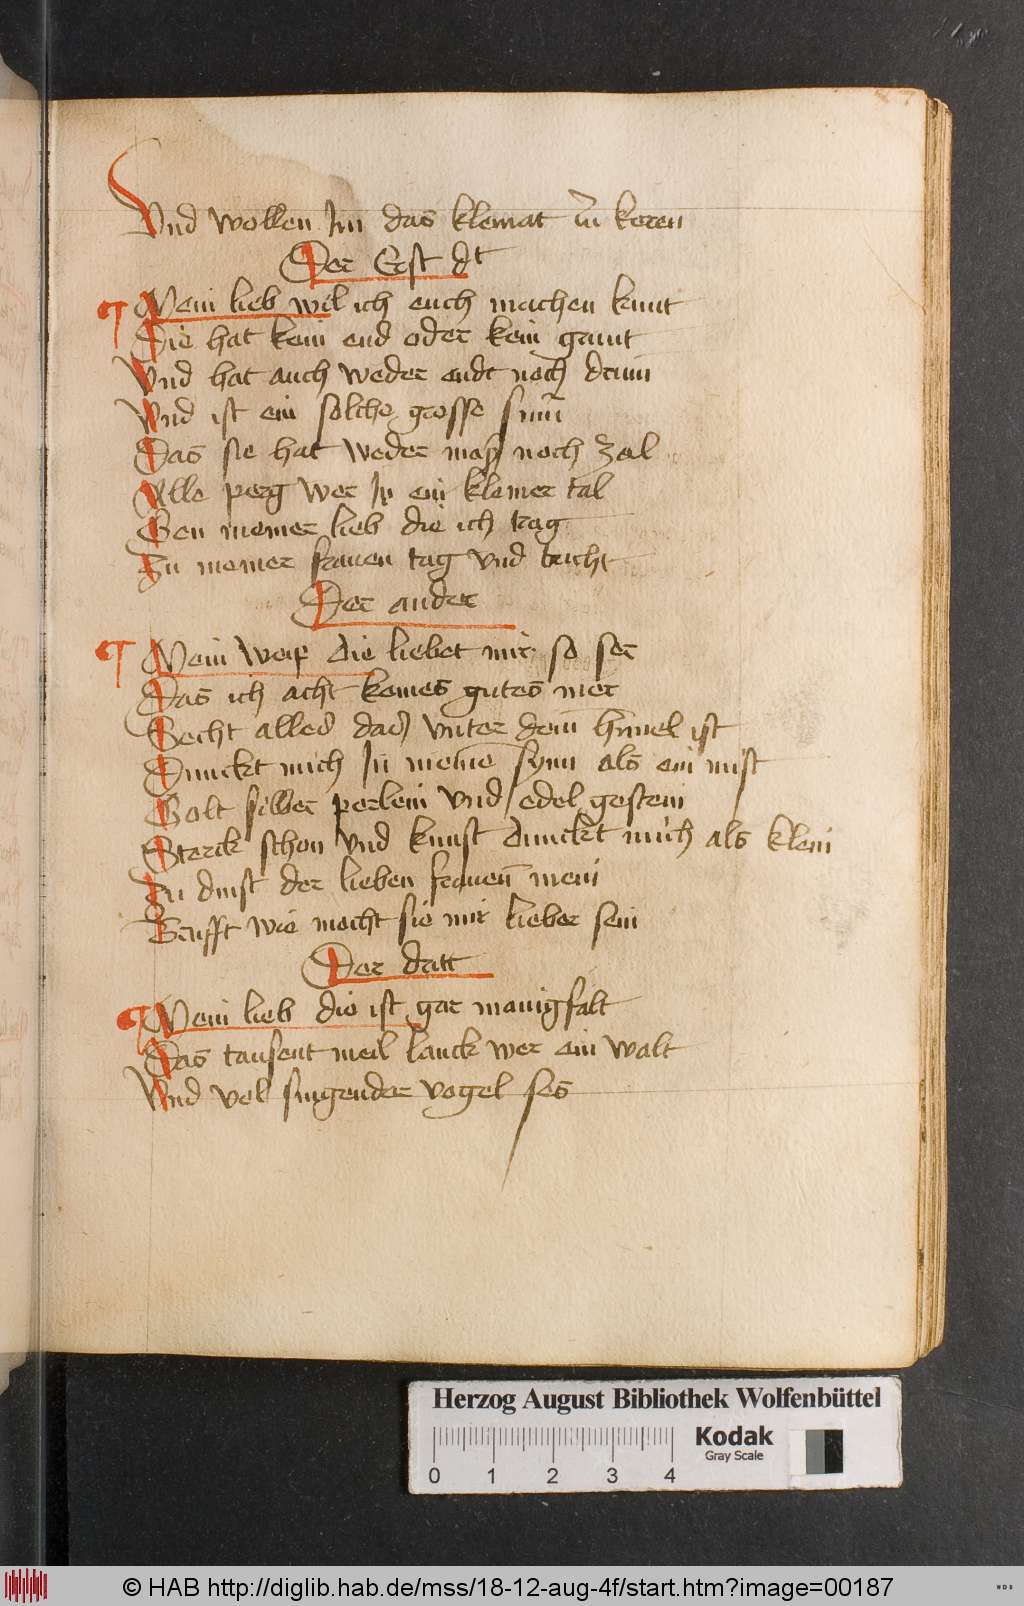 Vnd wollen Im das kleinat vm̄ keren
Der Erst dt
Mein lieb wil ich euch machen kunt
Die hat kein end oder kein grunt
Vnd hat auch weder endt noch drum
Vnd ist ein solche grosse sum̄
Das sie hat weder maß noch zal
Alle perg wer In ein kleiner tal
Gen meiner lieb die ich trag
Zu meiner frauen tag vnd nacht
Der ander
Mein weip die liebet mir so ser
Das ich acht keines gutes mer
Secht alles das vnter dem himel ist
Dunckt mich In meinē synn als ein mist
Golt silber perlein vnd edel gestein
Sterck schon vnd kunst dunckt mich als klein
Zu dinst der lieben frauen̄ mein
Prufft wie mocht sie mir lieber sein
Der dritt
Mein lieb die ist gar manigfalt
Das tausent meil lanck wer ein walt
Vnd vol singender vogel ses
Herzog August Bibliothek Wolfenbüttel
Kodak
Gray Scale
0 1 2 3 4
© HAB http://diglib.hab.de/mss/18-12-aug-4f/start.htm?image=00187